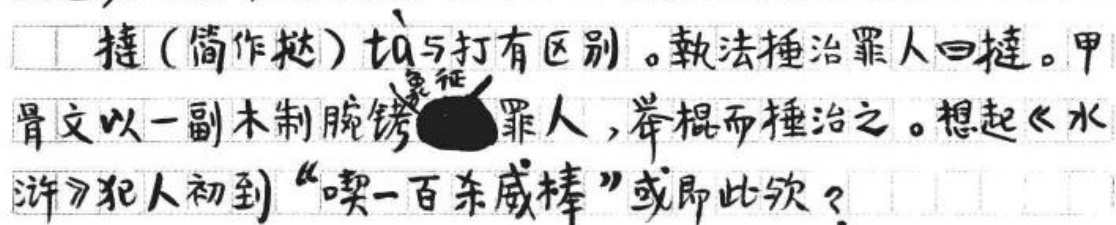 撻（简作挞）tà与打有区别。執法捶治罪人曰撻。甲
骨文以一副木制腕铐象征罪人，举棍而捶治之。想起《水
浒》犯人初到“喫一百杀威棒”或即此欤？